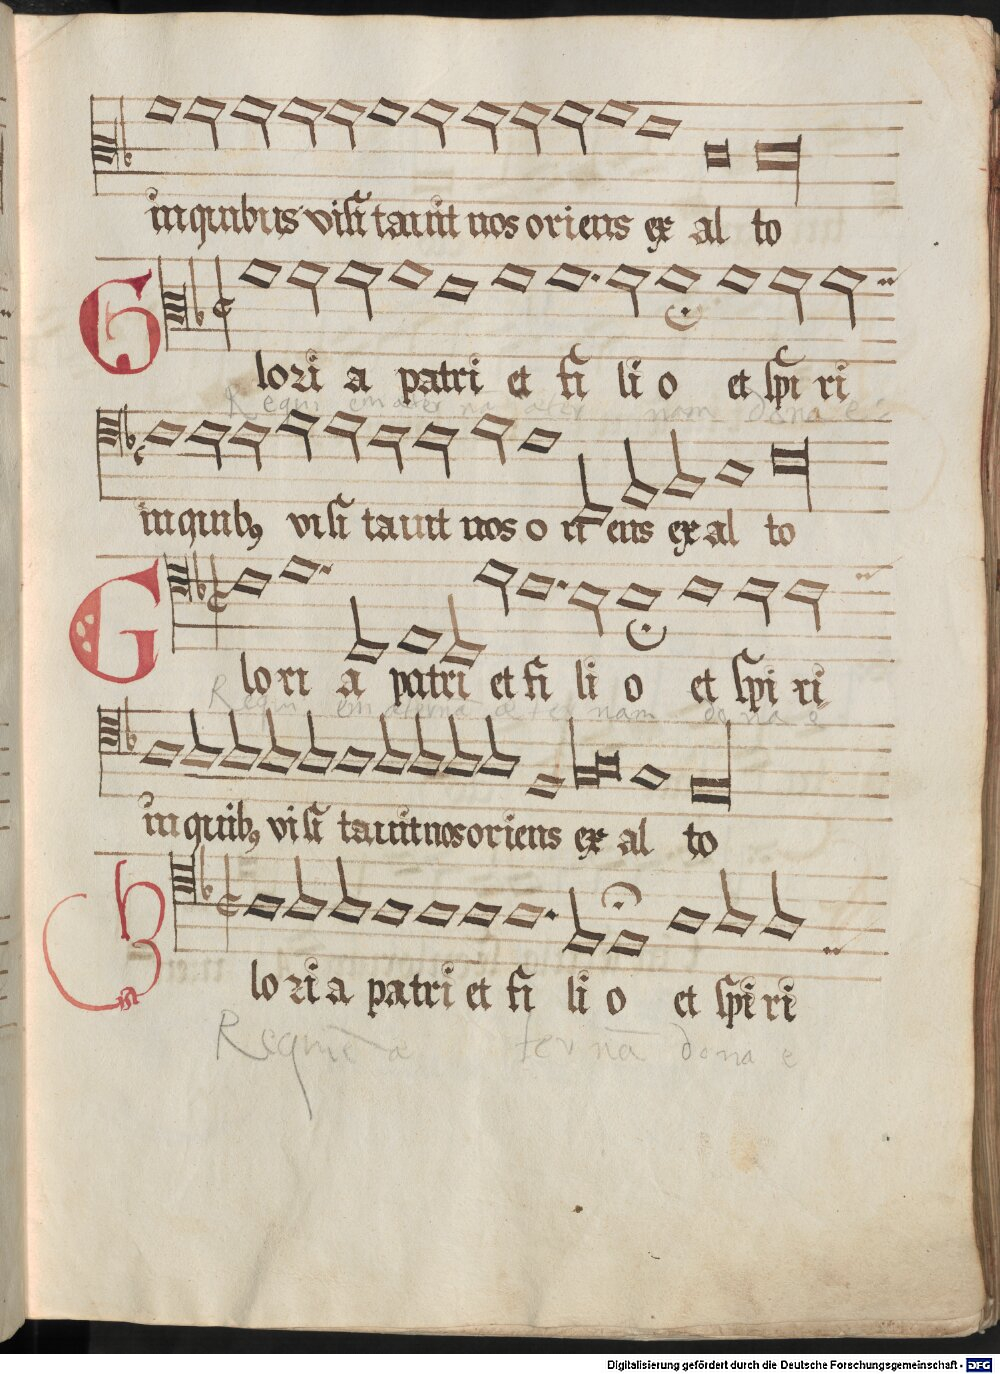 in quibus visi tauit nos oriens ex al to
Glori a patri et fi li o et spi ri
Requi em aeter na aeter nam dona ei
in quib9 visi tauit nos o ri ens ex al to
Glo ri a patri et fi li o et spi ri
Requi em aeterna ae ter nam do na e
in quib9 vi si tauit nos oriens ex al to
Glo ri a patri et fi li o et spi ri
Requiē ae ternā dona e
Digitalisierung gefördert durch die Deutsche Forschungsgemeinschaft - DFG